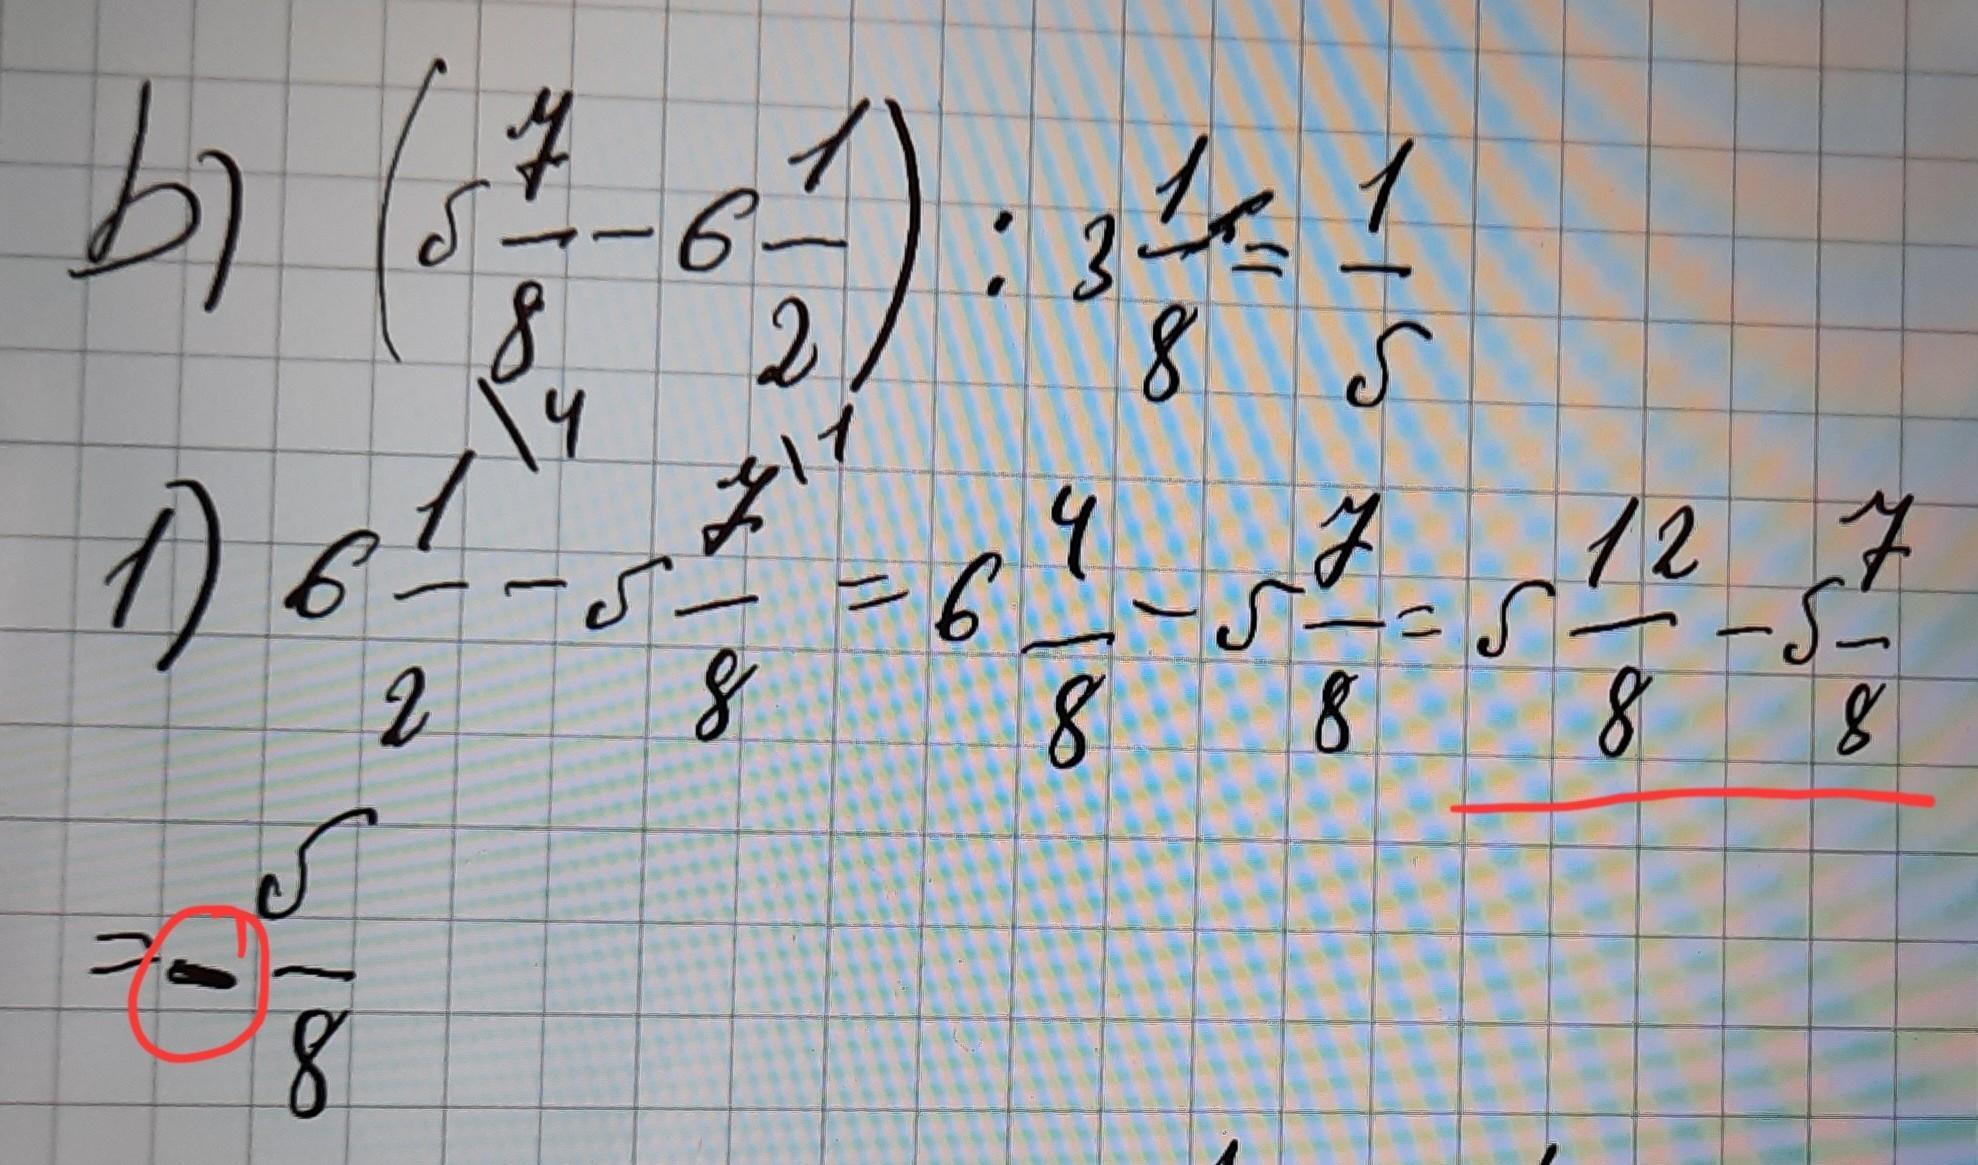 b) (5 7/8 - 6 1/2) : 3 1/8 = 1/5
1) 6 1/2 \4 - 5 7/8 \1 = 6 4/8 - 5 7/8 = 5 12/8 - 5 7/8
= - 5/8